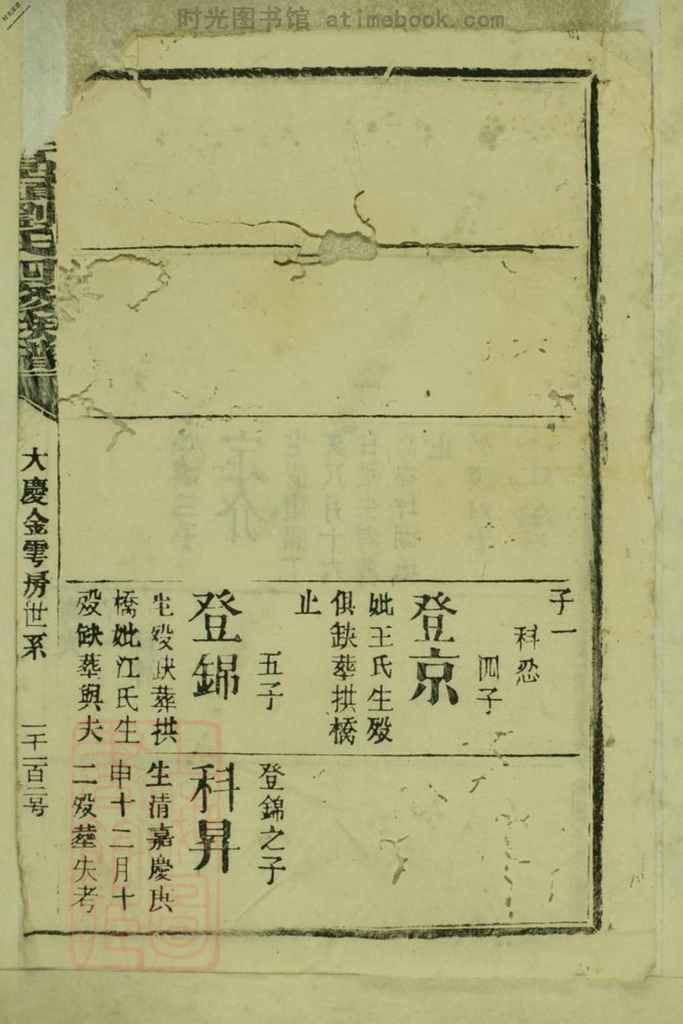 时光图书馆 atimebook.com
子一
科忍
四子
登京
妣王氏生殁
俱缺葬拱橋
止
五子
登錦
生殁缺葬拱
橋妣江氏生
殁缺葬與夫
登錦之子
科昇
生清嘉慶庚
申十二月十
二殁葬失考
劉氏四修族譜
大慶金雩房世系
一千一百二号